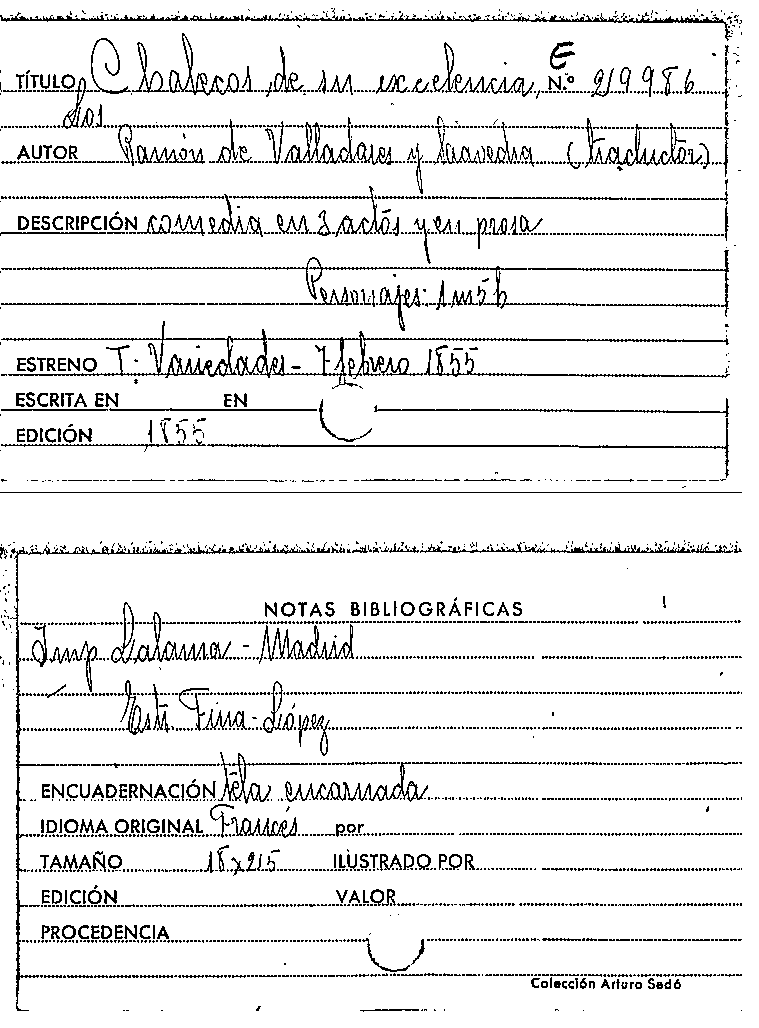 E
TÍTULO Chalecos de su excelencia, N.º 219986
Los
AUTOR Ramón de Valladares y Saavedra (traductor)
DESCRIPCIÓN comedia en 3 actos y en prosa
Personajes: 1m5h
ESTRENO T. Variedades - 7 febrero 1855
ESCRITA EN EN
EDICIÓN 1855
NOTAS BIBLIOGRÁFICAS
Imp Lalama - Madrid
Estr. Fina-López
ENCUADERNACIÓN tela encarnada
IDIOMA ORIGINAL Francés por
TAMAÑO 18x215 ILUSTRADO POR
EDICIÓN VALOR
PROCEDENCIA
Colección Arturo Sedó